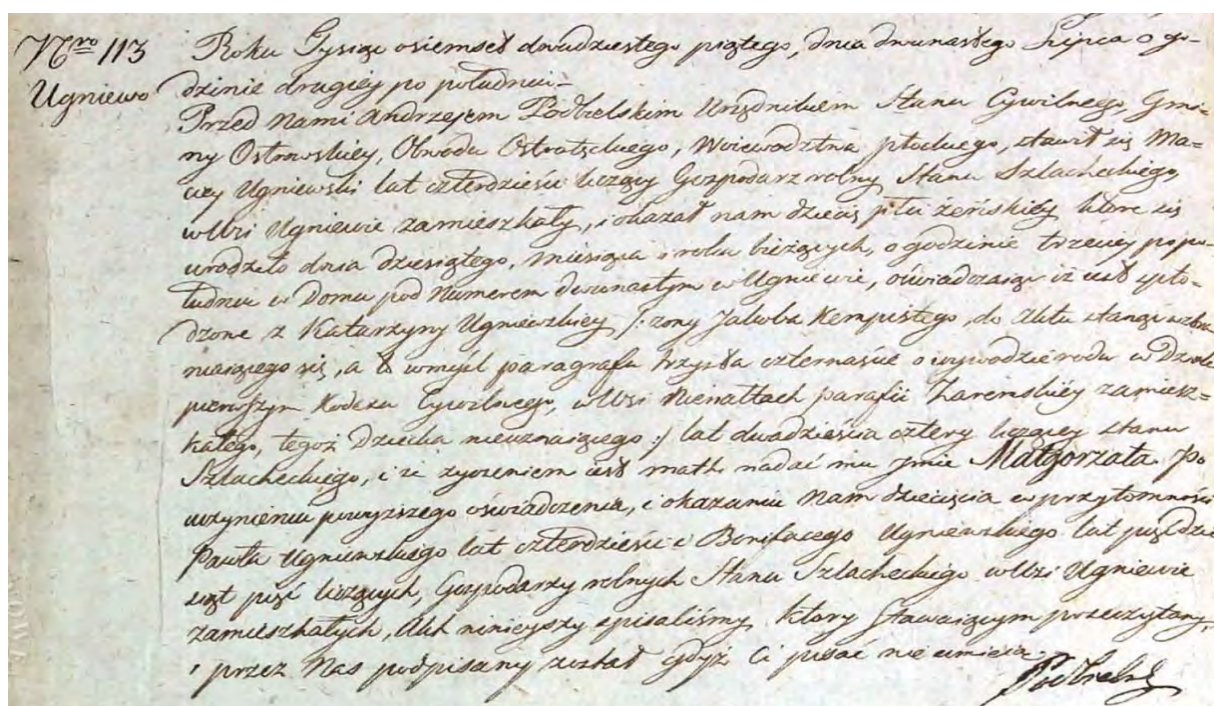 Nro 113 Roku Tysiąc osiemset dwudziestego piątego, dnia dwunastego Lipca o go-
Ugniewo dzinie drugiey po południu –
Przed Nami Andrzejem Podbielskim Urzędnikiem Stanu Cywilnego, Gmi-
ny Ostrowskiey, Obwodu Ostrołęckiego, Woiewodztwa płockiego, stawił się Ma-
ciey Ugniewski lat czterdzieści liczący Gospodarz rolny Stanu Szlacheckiego
w Wsi Ugniewie zamieszkały, i okazał nam dziecię płci żeńskiey, które się
urodziło dnia dziesiątego, miesiąca i roku bieżących, o godzinie trzeciey po po-
łudniu w Domu pod Numerem dwunastym w Ugniewie, oświadczając iż iest spło-
dzone z Katarzyny Ugniewskiey /: żony Jakoba Kempistego, do Aktu stanąć wzbra-
niaiącego się, a to w myśl paragrafu trzysta czternaście o wywodzie rodu w Dziale
pierwszym Kodexu Cywilnego, w Wsi Nienałtach parafii Zarenskiey zamiesz-
kałego, tegoż Dziecka nieuznaiącego :/ lat dwadzieścia cztery liczącey stanu
Szlacheckiego, i że życzeniem iest matki nadać mu Jmie Małgorzata. Po
uczynieniu powyższego oświadczenia, i okazaniu Nam dziecięcia w przytomności
Pawła Ugniewskiego lat czterdzieści i Bonifacego Ugniewskiego lat pięćdzie-
siąt pięć liczących, Gospodarzy rolnych Stanu Szlacheckiego w Wsi Ugniewie
zamieszkałych, Akt ninieyszy spisaliśmy, który Stawaiącym przeczytany,
i przez Nas podpisany został gdyż Ci pisać nie umieią.
Podbielski